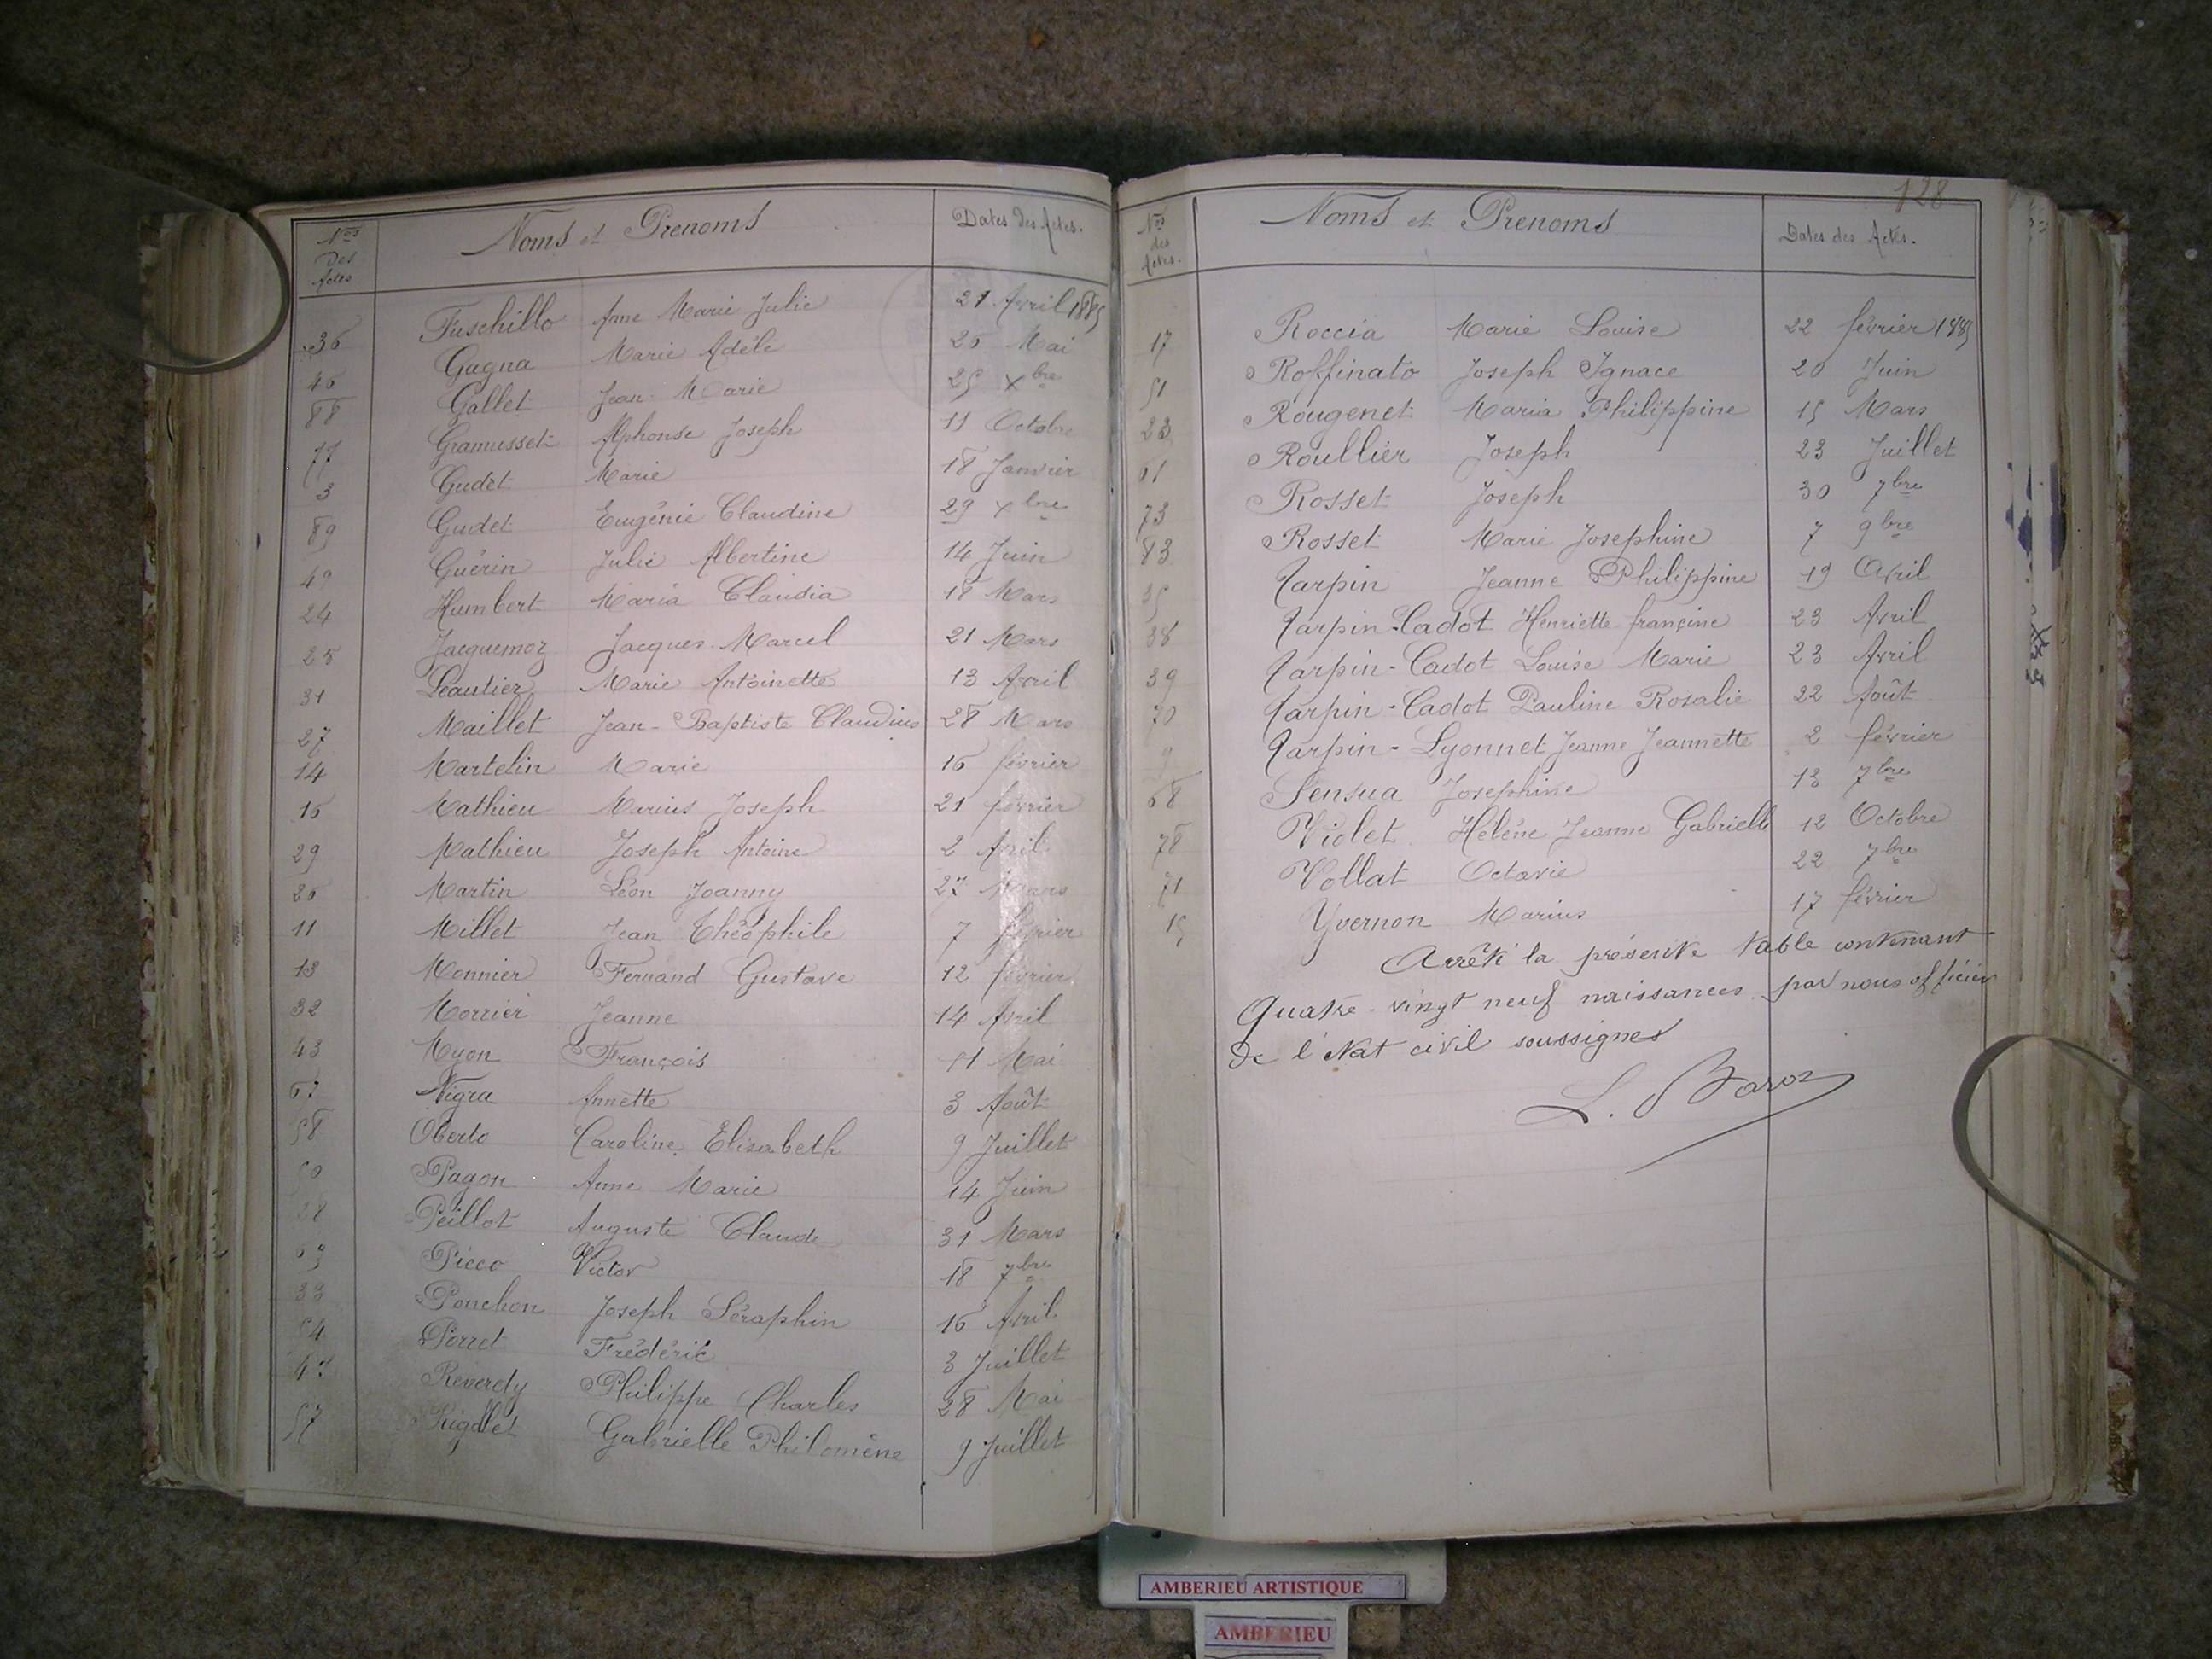 Nos des Actes Noms et Prenoms Dates des Actes.
36 Fuschillo Anne Marie Julie 21 Avril 1885
46 Gagna Marie Adèle 26 Mai
88 Gallet Jean Marie 25 Xbre
77 Gramusset Alphonse Joseph 11 Octobre
3 Gudet Marie 18 Janvier
89 Gudet Eugénie Claudine 29 Xbre
49 Guérin Julie Albertine 14 Juin
24 Humbert Maria Claudia 18 Mars
25 Jacquemoz Jacques Marcel 21 Mars
31 Leautier Marie Antoinette 13 Avril
27 Maillet Jean-Baptiste Claudius 28 Mars
14 Martelin Marie 16 février
16 Mathieu Marius Joseph 21 février
29 Mathieu Joseph Antoine 2 Avril
26 Martin Léon Joanny 27 Mars
11 Millet Jean Théophile 7 février
13 Monnier Fernand Gustave 12 février
32 Morrier Jeanne 14 Avril
43 Myon François 11 Mai
67 Nigra Annette 3 Août
58 Oberto Caroline Elisabeth 9 Juillet
50 Pagon Anne Marie 14 Juin
28 Peillot Auguste Claude 31 Mars
69 Picco Victor 18 7bre
33 Ponchon Joseph Séraphin 16 Avril
54 Porret Frédéric 3 Juillet
47 Reverdy Philippe Charles 28 Mai
57 Rigollet Gabrielle Philomène 9 Juillet
128
Nos des Actes. Noms et Prenoms Dates des Actes.
17 Roccia Marie Louise 22 février 1885
51 Roffinato Joseph Ignace 20 Juin
23 Rougenet Maria Philippine 15 Mars
61 Roullier Joseph 23 Juillet
73 Rosset Joseph 30 7bre
83 Rosset Marie Josephine 7 9bre
35 Tarpin Jeanne Philippine 19 Avril
38 Tarpin-Cadot Henriette françine 23 Avril
39 Tarpin-Cadot Louise Marie 23 Avril
70 Tarpin-Cadot Pauline Rosalie 22 Août
9 Tarpin-Lyonnet Jeanne Jeannette 2 février
68 Sensua Josephine 13 7bre
78 Violet Hélène Jeanne Gabrielle 12 Octobre
71 Vollat Octavie 22 7bre
15 Yvernon Marius 17 février
Arrêté la présente table contenant
Quatre-vingt neuf naissances par nous officier
de l'état civil soussigné
L. Baroz
AMBERIEU ARTISTIQUE
AMBERIEU